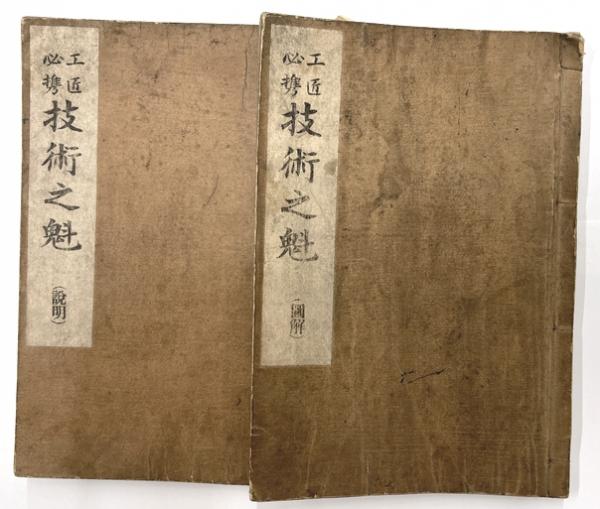 工匠
必携
技術之魁
(説明)
工匠
必携
技術之魁
(圖解)